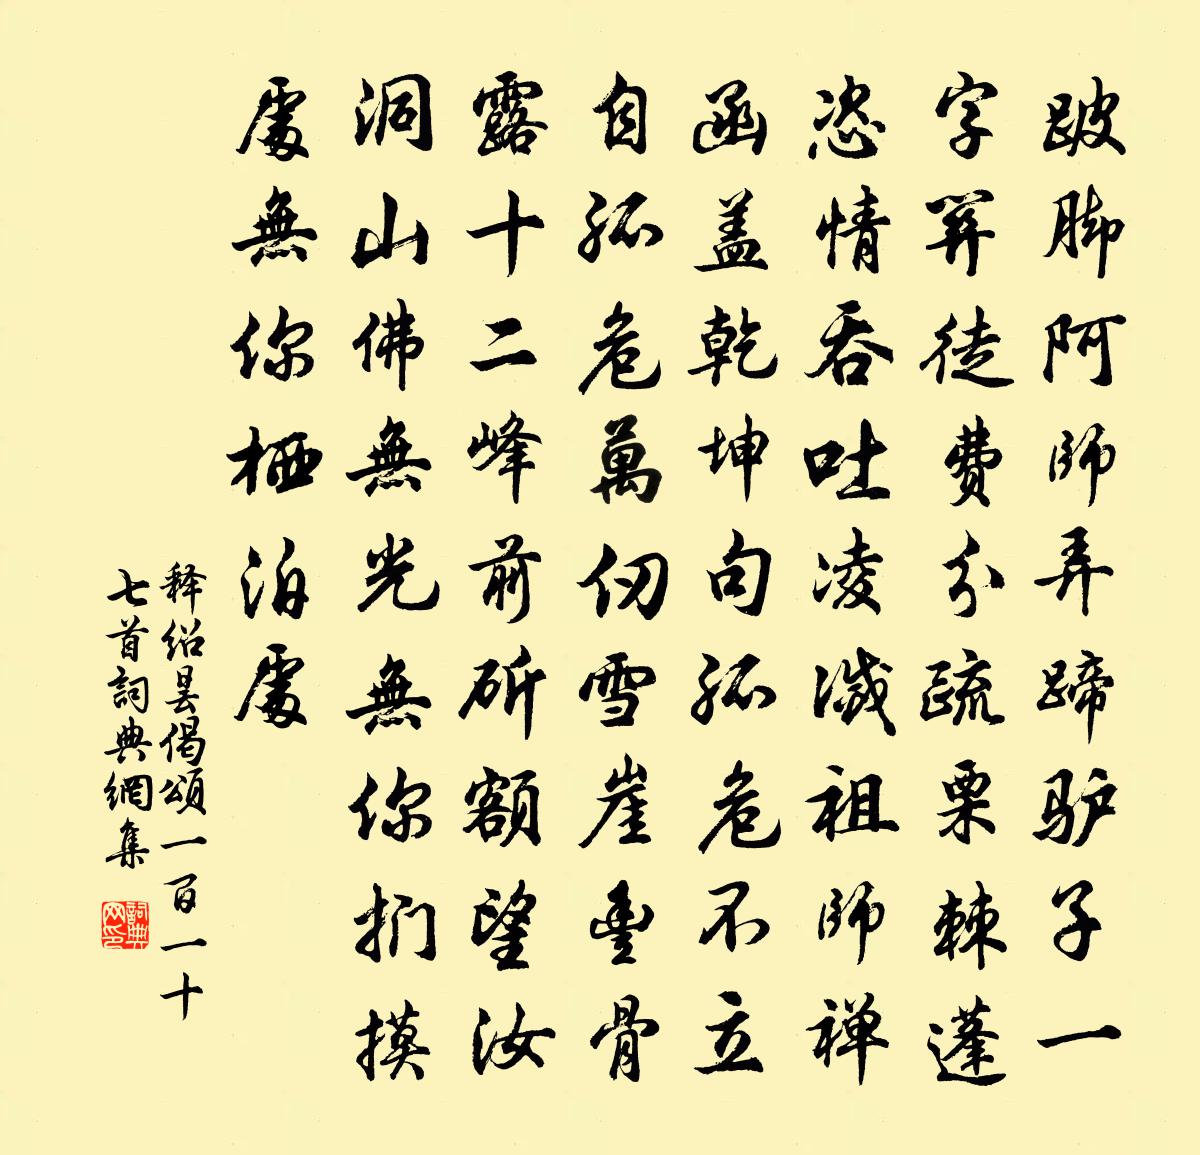 跛脚阿师弄蹄驴子一
字關徒費分疏栗棘蓬
恣情吞吐凌滅祖师禅
函盖乾坤句孤危不立
自孤危萬仞雪崖豊骨
露十二峰前斫额望汝
洞山佛無光無你捫摸
處無你栖泊處
释绍昙偈頌一百一十
七首詞典網集
詞典网印